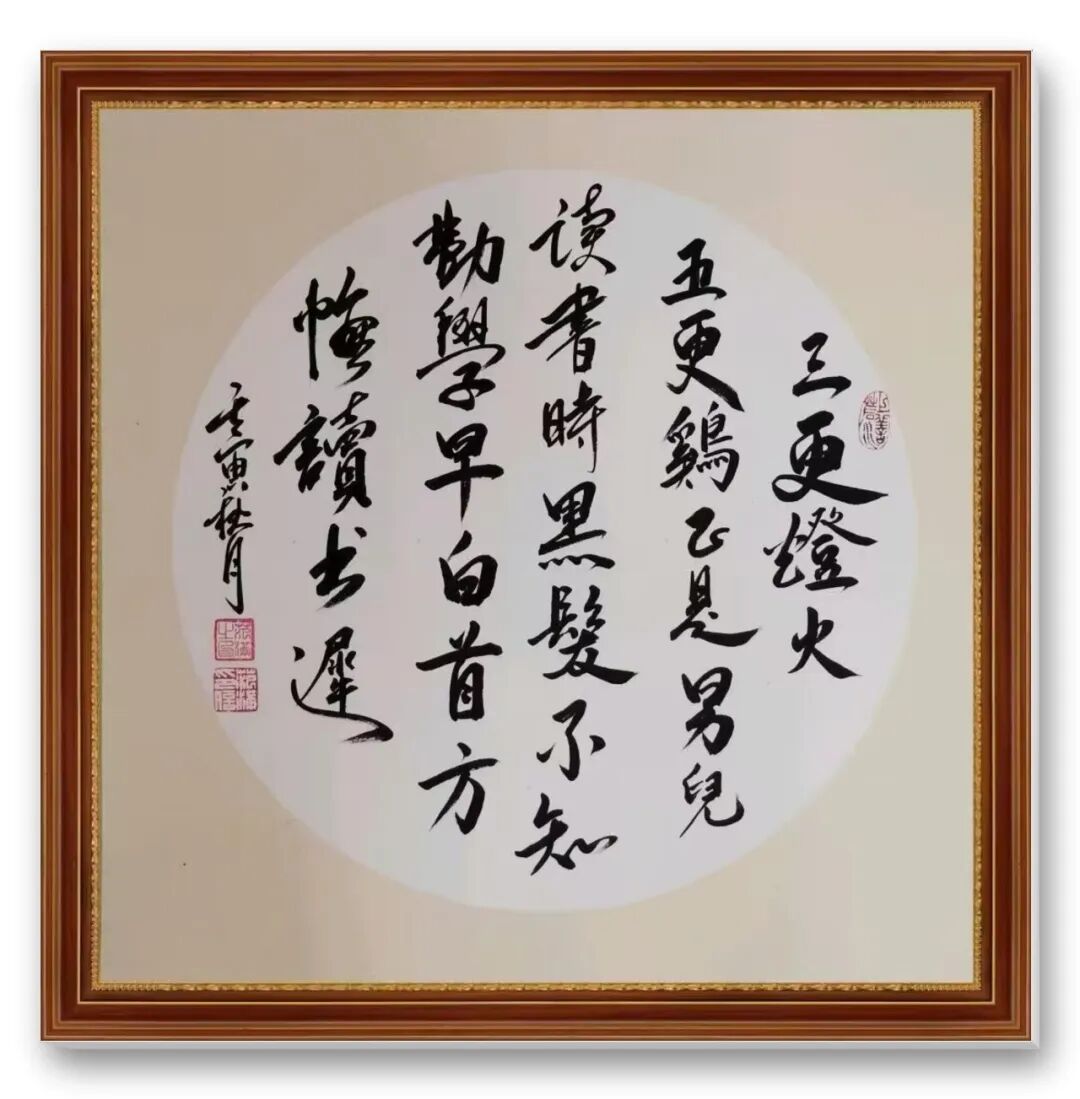 三更燈火
五更鷄正是男兒
读書時黑髮不知
勸學早白首方
悔讀书遲
壬寅秋月